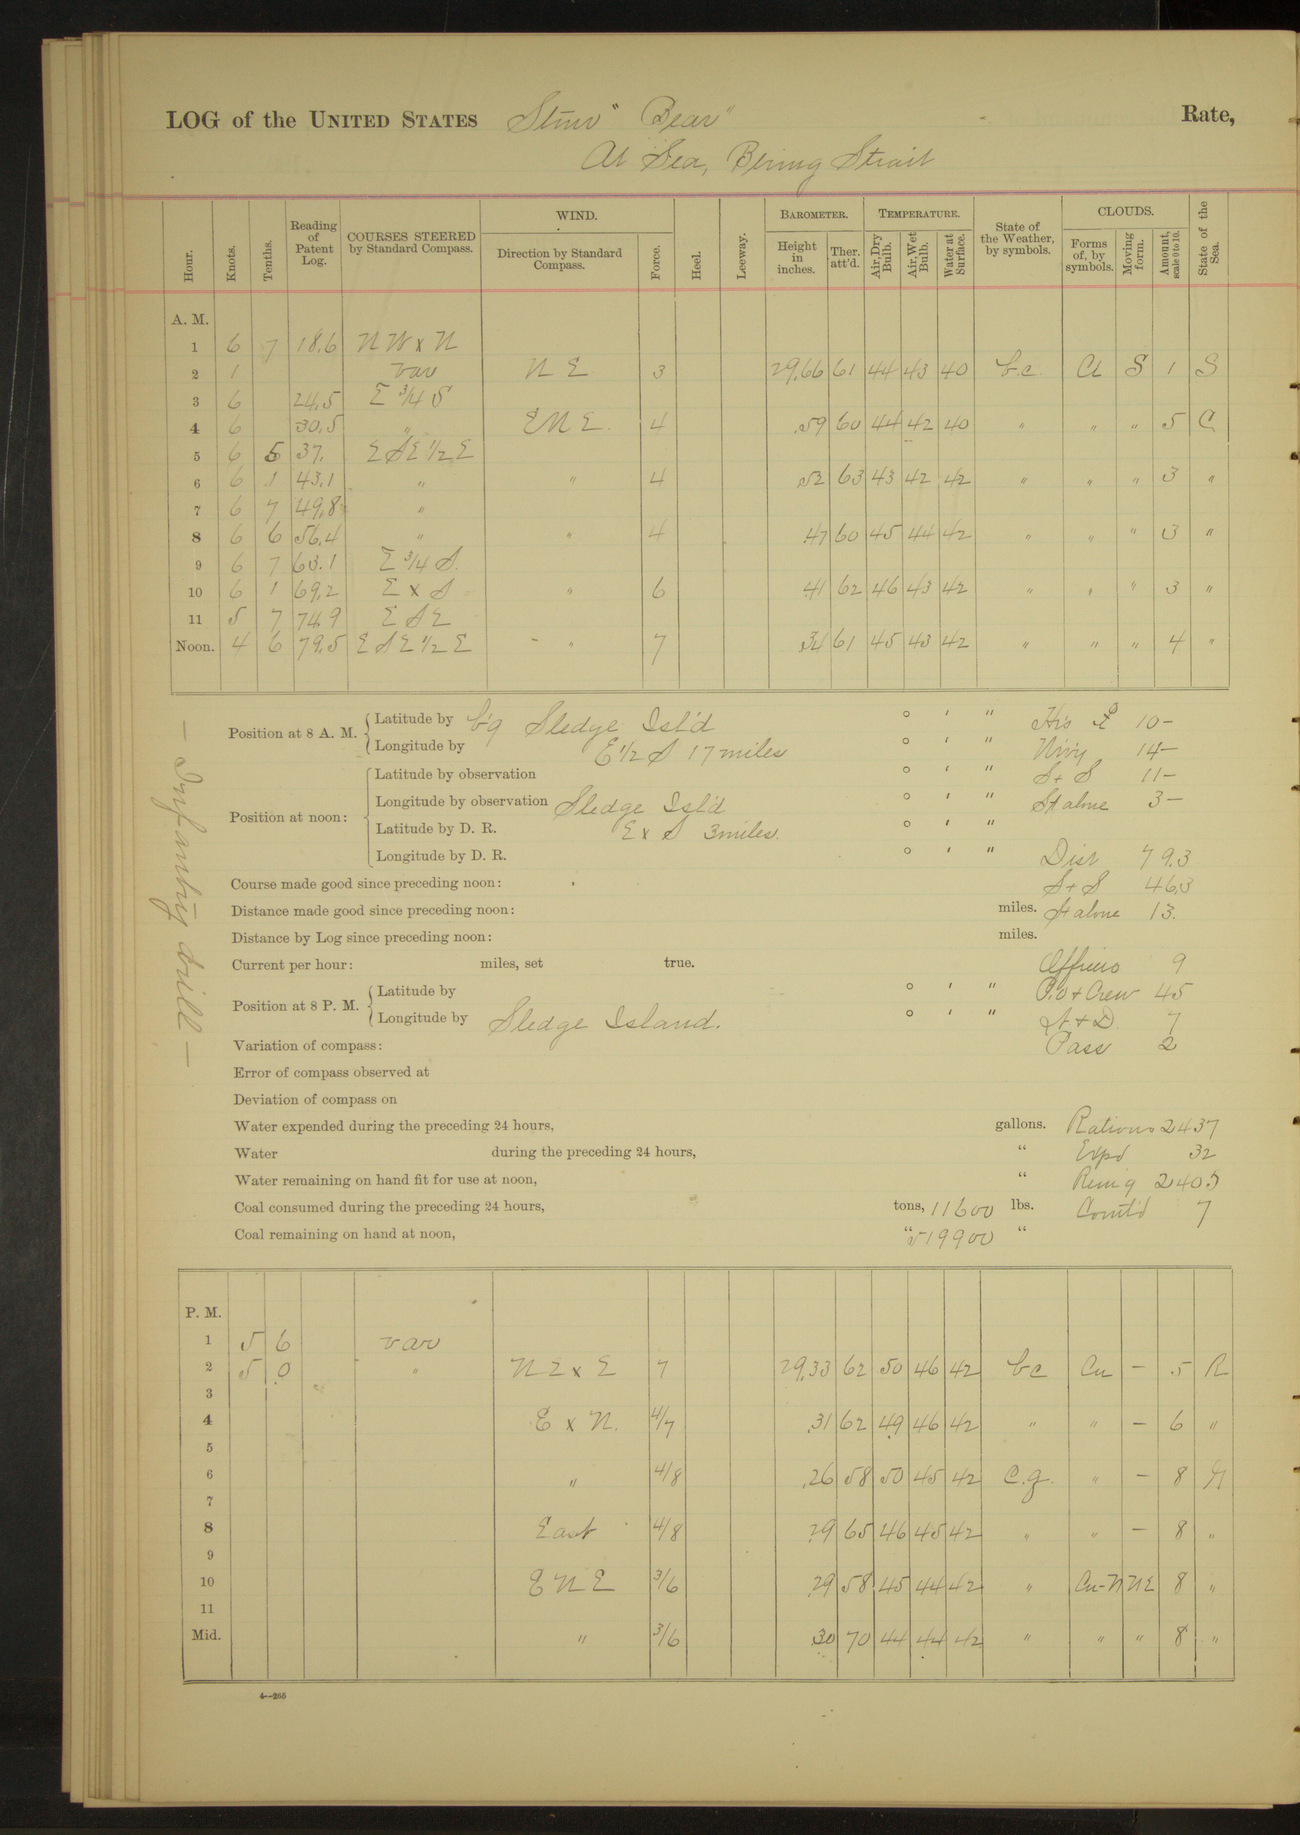 LOG of the UNITED STATES Stmr "Bear" Rate,
At Sea, Bering Strait
Hour. Knots. Tenths. Reading of Patent Log. COURSES STEERED by Standard Compass. WIND. Direction by Standard Compass. Force. Heel. Leeway. BAROMETER. Height in inches. Ther. att'd. TEMPERATURE. Air, Dry Bulb. Air, Wet Bulb. Water at Surface. State of the Weather, by symbols. CLOUDS. Forms of, by symbols. Moving form. Amount, scale 0 to 10. State of the Sea.
A. M.
1 6 7 18.6 NW x N
2 1 var N E 3 29.66 61 44 43 40 b.c. Ci S 1 S
3 6 24.5 E 3/4 S
4 6 30.5 " ENE. 4 .59 60 44 42 40 " " " 5 C
5 6 5 37. ESE 1/2 E
6 6 1 43.1 " " 4 .52 63 43 42 42 " " " 3 "
7 6 7 49.8 "
8 6 6 56.4 " " 4 .47 60 45 44 42 " " " 3 "
9 6 7 63.1 E 3/4 S.
10 6 1 69.2 E x S " 6 .41 62 46 43 42 " " " 3 "
11 5 7 74.9 E S E
Noon. 4 6 79.5 E S E 1/2 E " 7 .34 61 45 43 42 " " " 4 "
Position at 8 A. M. Latitude by b'g Sledge Isl'd ° ' " Hrs 10 -
Longitude by E 1/2 S 17 miles ° ' " Nvg 14 -
Position at noon: Latitude by observation ° ' " S + S 11 -
Longitude by observation Sledge Isl'd ° ' " St alone 3 -
Latitude by D. R. E x S 3 miles. ° ' "
Longitude by D. R. ° ' " Dist 79.3
Course made good since preceding noon: S + S 46.3
Distance made good since preceding noon: miles. St alone 13.
Distance by Log since preceding noon: miles.
Current per hour: miles, set true. Officers 9
Position at 8 P. M. Latitude by ° ' " P.O + Crew 45
Longitude by Sledge Island. ° ' " + D. 7
Variation of compass: Pass 2
Error of compass observed at
Deviation of compass on
Water expended during the preceding 24 hours, gallons. Rations 2437
Water during the preceding 24 hours, " Exp'd 32
Water remaining on hand fit for use at noon, " Rem'g 2405
Coal consumed during the preceding 24 hours, tons, 11600 lbs. Com't'd 7
Coal remaining on hand at noon, " 519900 "
- Infantry drill -
P. M.
1 5 6 var
2 5 0 " N E x E 7 29.33 62 50 46 42 bc Cu - .5 R
3
4 E x N. 4/7 .31 62 49 46 42 " " - 6 "
5
6 " 4/8 .26 58 50 45 42 c.g. " - 8
7
8 East 4/8 .29 65 46 45 42 " " - 8 "
9
10 E N E 3/6 .29 58 45 44 42 " Cu-N NE 8 "
11
Mid. " 3/6 .30 70 44 44 42 " " " 8 "
4—265